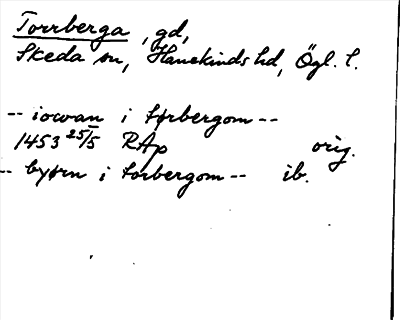 Torrberga, gd,
Skeda sn, Hanekinds hd, Ögl. l.
-- iowan i tørbergom --
1453 25/5 RAp orig.
-- byørn i torbergom -- ib.